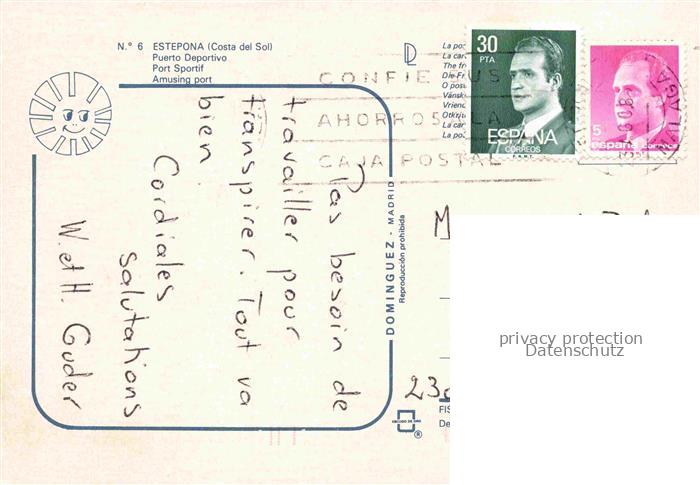 N.º 6 ESTEPONA (Costa del Sol)
Puerto Deportivo
Port Sportif
Amusing port
La
La car
The fr
Die Fr
O post
Vänsk
Vrienc
Otkri
La car
La po
30
PTA
ESPAÑA
CORREOS
5
españa correos
CONFIE SUS
AHORROS A LA
CAJA POSTAL
Pas besoin de
travailler pour
transpirer. Tout va
bien.
Cordiales
salutations
W. et H. Guder
DOMINGUEZ - MADRID
Reproducción prohibida
M
23
FIS
De
ESCUDO DE ORO
®
privacy protection
Datenschutz